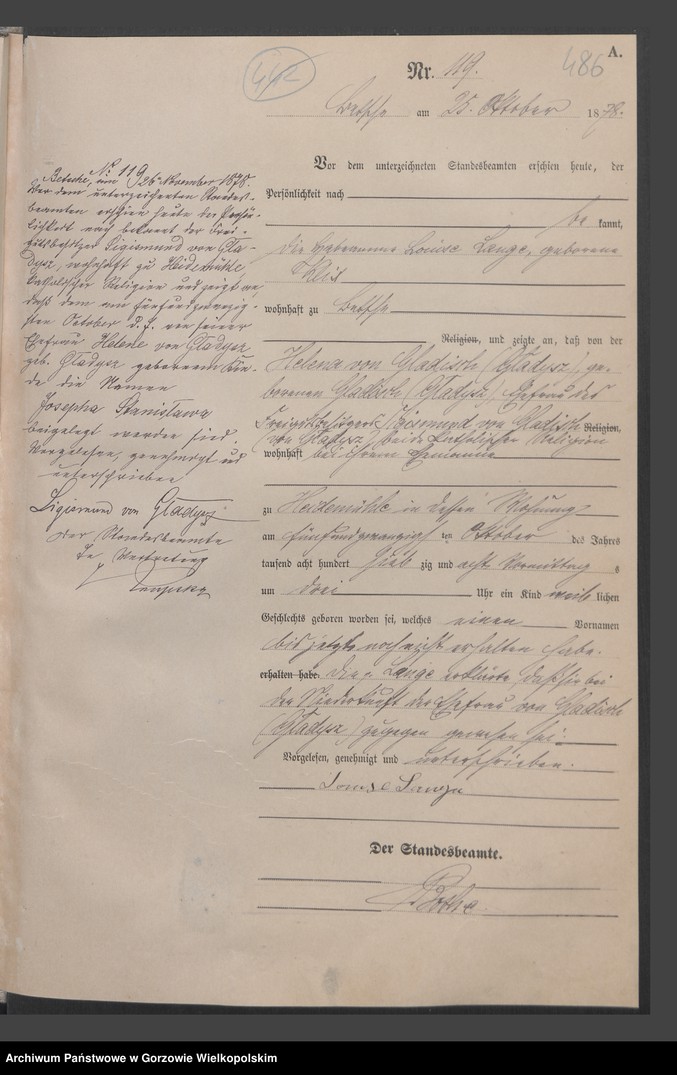 A.
486
442
Nr. 119.
Betsche am 25. Oktober 1878.
Vor dem unterzeichneten Standesbeamten erschien heute, der
Persönlichkeit nach
be kannt,
die Hebeamme Louise Lange, geborene
wohnhaft zu Betsche
Religion, und zeigte an, daß von der
Helena von Gladisch (Gładysz), ge-
borenen Gladisch (Gładysz), Ehefrau des
Freigutsbesitzers Sigismund von Gladisch Religion,
(von Gładysz) beide katholischer Religion
wohnhaft bei ihrem Ehemanne
zu Heidemühle in dessen Wohnung
am fünfundzwanzig ten Oktober des Jahres
tausend acht hundert sieb zig und acht Vormittag s
um drei Uhr ein Kind weib lichen
Geschlechts geboren worden sei, welches einen Vornamen
bis jetzt noch nicht erhalten habe.
erhalten habe. Die p. Lange erklärte, daß sie bei
der Niederkunft der Ehefrau von Gladisch
(Gładysz) zugegen gewesen sei.
Vorgelesen, genehmigt und unterschrieben.
Louise Lange
Der Standesbeamte.
No 119
Betsche, am 26 November 1878.
Vor dem unterzeichneten Standes-
beamten erschien heute der Persön-
lichkeit nach bekannt der Frei-
gutsbesitzer Sigismund von Gła-
dysz, wohnhaft zu Heidemühle,
katholischer Religion und zeigte an,
daß dem am fünfundzwanzig-
sten October d. J. von seiner
Ehefrau Helene von Gładysz
geb. Gładysz geborenen Kin-
de die Namen
Josepha Stanisława
beigelegt worden sind.
Vorgelesen, genehmigt und
unterschrieben
Sigismund von Gładysz
Der Standesbeamte
In Vertretung
Archiwum Państwowe w Gorzowie Wielkopolskim